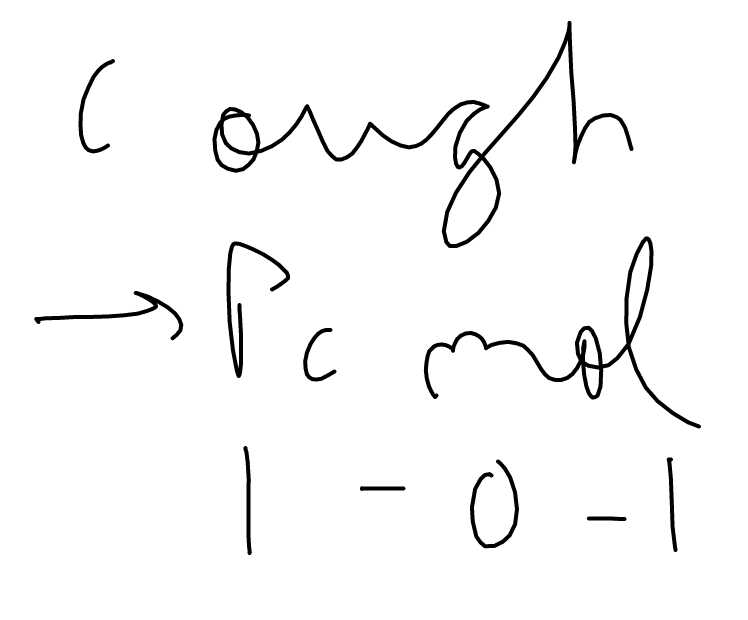 Cough
→ Pcmol
1-0-1